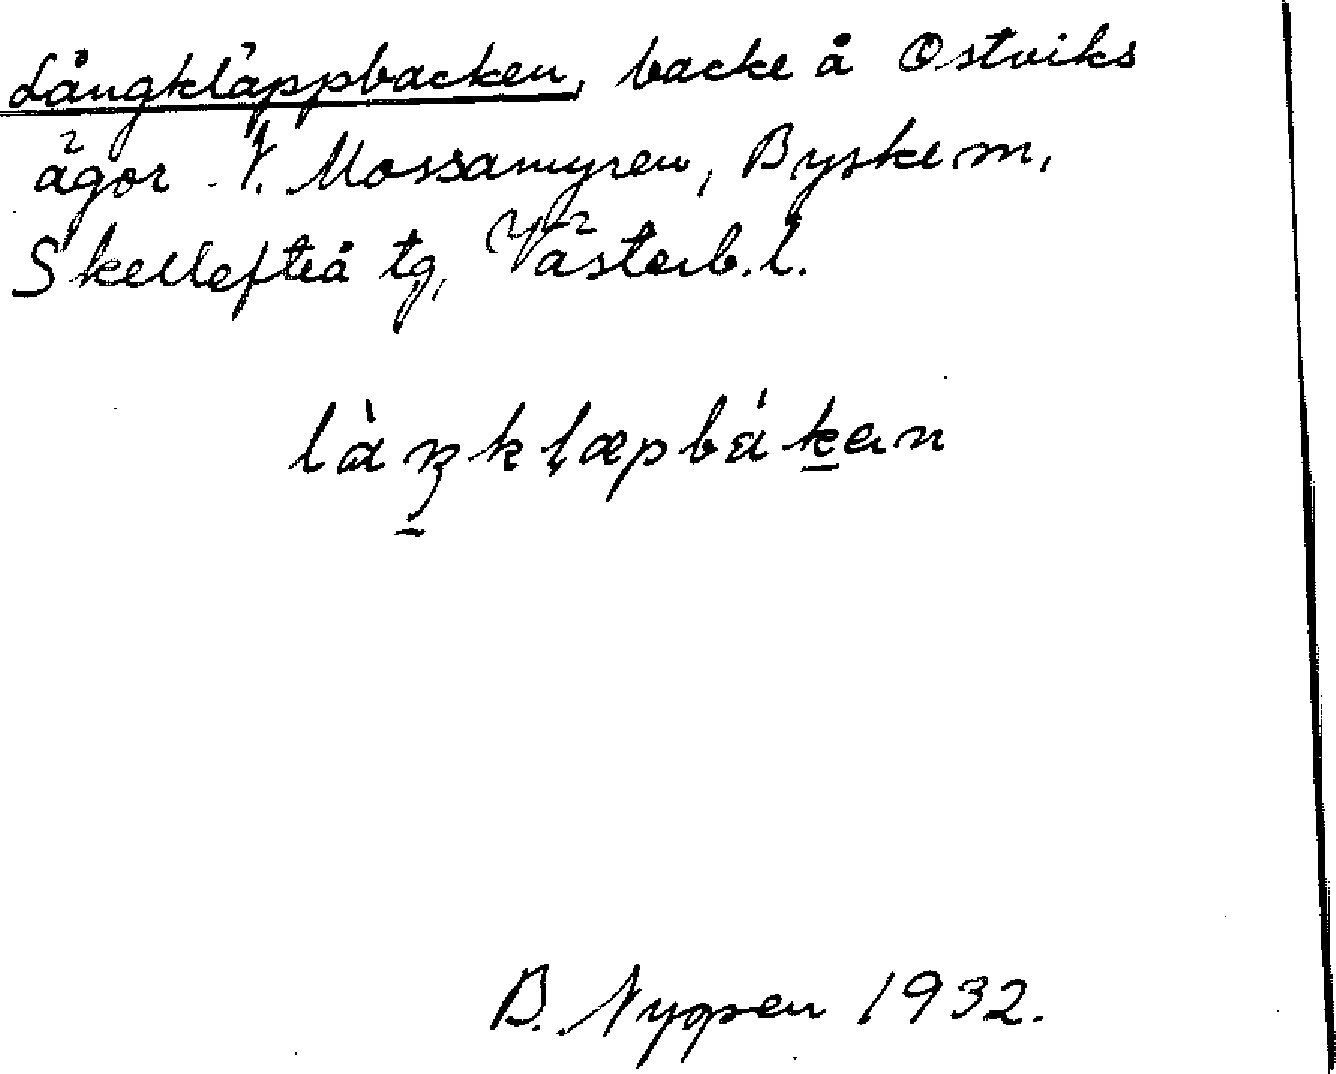 Långkläppbacken, backe å Ostviks
ägor N. Mossamyren, Byske m,
Skellefteå tg, Västerb. l.
là̱ŋkḷæpbáḵən
B. Nygren 1932.